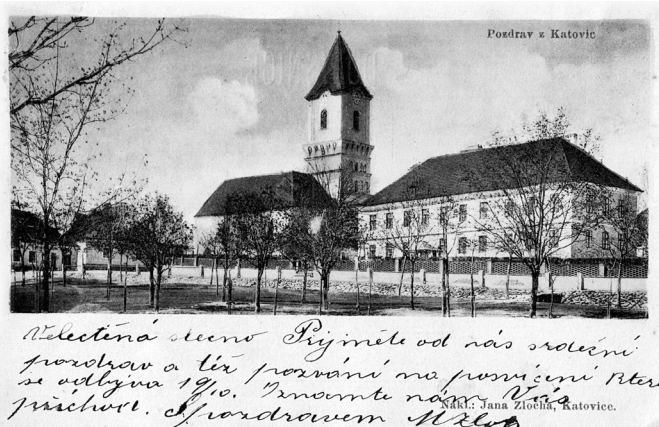 Pozdrav z Katovic
Velectěná slečno Přijměte od nás srdečni
pozdrav a též pozvání na posvícení Kter
se odbýva 19/10. Oznamte nám Vás
příchod. S pozdravem
Nákl.: Jana Zlocha, Katovice.